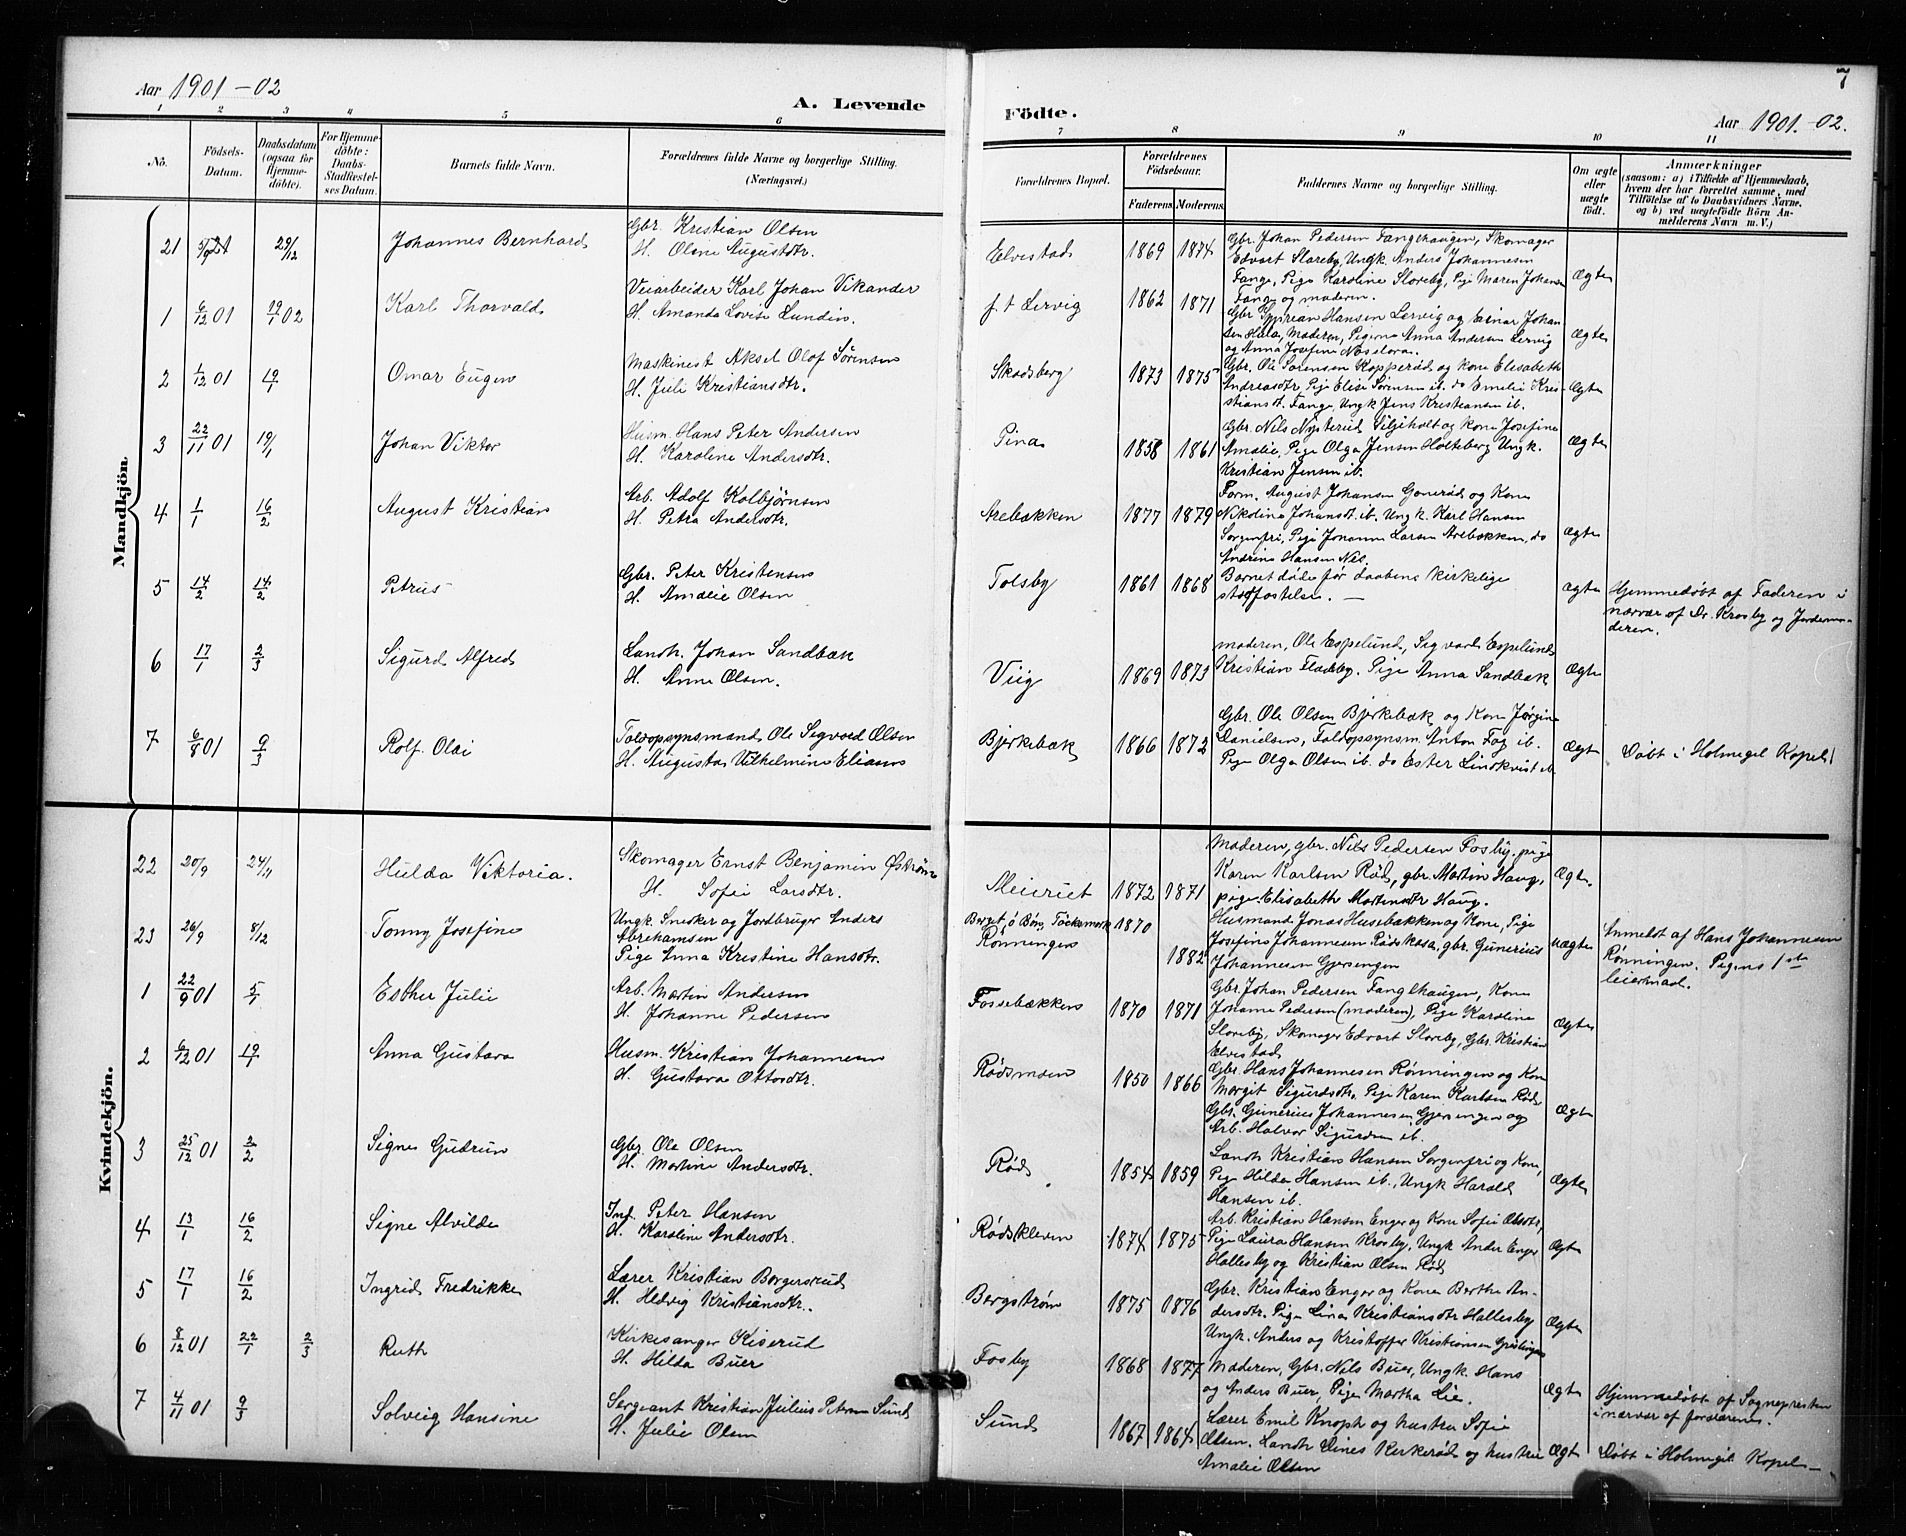 7
Aar 1901-02
A. Levende
Födte.
Aar 1901.-02.
1 2 3 4 5 6 7 8 9 10 11
No.
Födsels-
Datum.
Daabsdatum
(ogsaa for
Hjemme-
döbte).
For Hjemme-
döbte:
Daabs-
Stadfæstel-
ses Datum.
Barnets fulde Navn.
Forældrenes fulde Navne og borgerlige Stilling.
(Næringsvei.)
Forældrenes Bopæl.
Forældrenes
Födselsaar.
Faderens Moderens
Faddernes Navne og borgerlige Stilling.
Om ægte
eller
uægte
födt.
Anmærkninger
(saasom: a) i Tilfælde af Hjemmedaab,
hvem der har forrettet samme, med
Tilföielse af to Daabsvidners Navne,
og b) ved uægtefödte Börn An-
melderens Navn m. V.)
Mandkjön.
21 29/12 Johannes Bernhard
Gbr. Kristian Olsen
H. Oline Augustdtr.
Elvestad 1869 1874
Gbr. Johan Pedersen Fanglhaugen, Skomager
Edvart Sloreby, Ungk. Anders Johannesen
Fange, Pige Karoline Sloreby, Pige Maren Johansen
Fange og moderen.
Ægte
1 6/12 01 19/1 02 Karl Thorvald
Veiarbeider Karl Johan Vikander
H. Amanda Lovise Lundin.
f. t Lervig 1862 1871
Gbr. Hansen Lervig og Einar Johan
sen Moderen, Pigerne Anna Andersen Lervig
og Anna Josefine
Ægte
2 1/12 01 19/1 Omar Eugen
Maskinest Aksel Olof Sørensen
H. Juli Kristiansdtr.
Skodsberg 1873 1875
Gbr. Ole Sørensen Kopperød og kone Elisabeth
Andreasdtr Pige Elise Sørensen ib. do Emelie Kris-
tiansdt. Fange, Ungk Jens Kristiansen ib.
Ægte
3 22/11 01 19/1 Johan Viktor
Husm. Hans Peter Andersen
H. Karoline Andersdtr.
Pina 1858 1861
Gbr. Nils Nysterud og kone Josefine
Amalie, Pige Olga Jensen Holteberg Ungk.
Kristian Jensen ib.
Ægte
4 1/1 16/2 August Kristian
Arb. Adolf Kolbjørnsen
H. Petra Andersdtr.
Arebækken 1877 1879
Form. August Johansen Gonerød og Kone
Nikoline Johansdt. ib. Ungk. Karl Hansen
Sorgenfri, Pige Johanne Larsen Arebækken, do
Andrine Hansen Nes.
Ægte
5 14/2 14/2 Petrus
Gbr. Peter Kristensen
H. Amalie Olsen
Tolsby 1861 1868
Barnet døde før daabens kirkelige
stadfæstelse. —
Ægte
Hjemmedøbt af Faderen i
nærvær af Dr. Krosby og Jordemo-
deren.
6 17/1 2/3 Sigurd Alfred
Landh. Johan Sandbæk
H. Anne Olsen.
Viig 1869 1873
moderen, Ole Espelund, Sigvard Espelund
Kristian Fladeby. Pige Anna Sandbæk
Ægte
7 6/8 01 9/3 Rolf Olai
Toldopsynsmand Ole Sigvard Olsen
H. Augusta Vilhelmine Eliasen
Bjerkebæk 1866 1872
Gbr. Ole Olsen Bjerkebæk og Kone Jørgine
Danielsen, Toldopsynsm. Anton Fog ib.
Pige Olga Olsen ib. do Ester Lindkvist ib.
Ægte
Døbt i Holmegil Kapel
Kvindekjön.
22 20/9 24/11 Hulda Viktoria.
Skomager Ernst Benjamin Østrøm
H. Sofie Larsdtr.
Meieriet 1872 1871
Moderen, gbr. Nils Pedersen Fosby, pige
Karen Karlsen Rød, gbr. Martin Haug,
pige Elisabeth Martinsdtr Haug.
Ægte.
23 26/9 8/12 Tonny Josefine
Ungk. Snekker og Jordbruger Anders
Abrehamsen
Pige Anna Kristine Hansdtr.
Berget ö Bön, Töcksmark 1870
Rønningen 1882
Husmand Jonas Husebækken og Kone, Pige
Josefine Johannesen Rødskasa, gbr. Gunerius
Johannesen Gjersingen
uægte
Anmeldt af Hans Johannesen
Rønningen. Pigens 1ste
leiermaal.
1 22/9 01 5/1 Esther Julie
Arb. Martin Andersen
H. Johanne Pedersen
Fossebækken 1870 1871
Gbr. Johan Pedersen Fanglhaugen, Kone
Johanne Pedersen (moderen), Pige Karoline
Sloreby, Skomager Edvart Sloreby, Gbr. Kristian
Elvestad
Ægte
2 6/12 01 19/1 Anna Gustava
Husm. Kristian Johannesen
H. Gustava Ottosdtr.
Rødsmoen 1850 1866
Gbr. Hans Johannesen Rønningen og Kone
Margit Sigurdsdtr. Pige Karen Karlsen Rød,
Gbr. Gunerius Johannesen, Gjersingen og
Arb. Halvor Sigurdsen ib.
Ægte
3 25/12 01 2/2 Signe Gudrun
Gbr. Ole Olsen
H. Martine Andersdtr.
Rød 1854 1859
Landh Kristian Hansen Sorgenfri og Kone,
Pige Hilda Hansen ib., Ungk Harald
Hansen ib.
Ægte
4 13/1 16/2 Signe Alvilde
Inf. Peter Hansen
H. Karoline Andersdtr.
Rødskleven 1874 1875
Arb. Kristian Hansen Enger og Kone Sofie Olsdtr,
Pige Laura Hansen Krosby, Ungk Ander Enger
Hallesby og Kristian Olsen Rød
Ægte
5 17/1 16/2 Ingrid Fredrikke
Lærer Kristian Borgersrud
H. Hedvig Kristiansdtr.
Bergstrøm 1875 1876
Gbr. Kristian Enger og Kone Berthe An-
dersdtr. Pige Lina Kristiansdtr Hallesby
Ungk. Anders og Kristoffer Kristiansen
Ægte
6 8/12 01 22/1 2/3 Ruth
Kirkesanger Kiserud
H. Hilda Buer
Fosby 1868 1877
Moderen, Gbr. Nils Buer, Ungk. Hans
og Anders Buer, Pige Martha Lie.
Ægte
Hjemmedøbt af Sognepresten
i nærvær af forældrene.
7 4/11 01 9/3 Solveig Hansine
Sergeant Kristian Julius Petersen Sund
H. Julie Olsen
Sund 1867 1864
Lærer Emil Knoph og hustru Sofie
Olsen. Landh Dines Kirkerød og hustru
Amalie Olsen
Ægte
Døbt i Holmegil Kapel